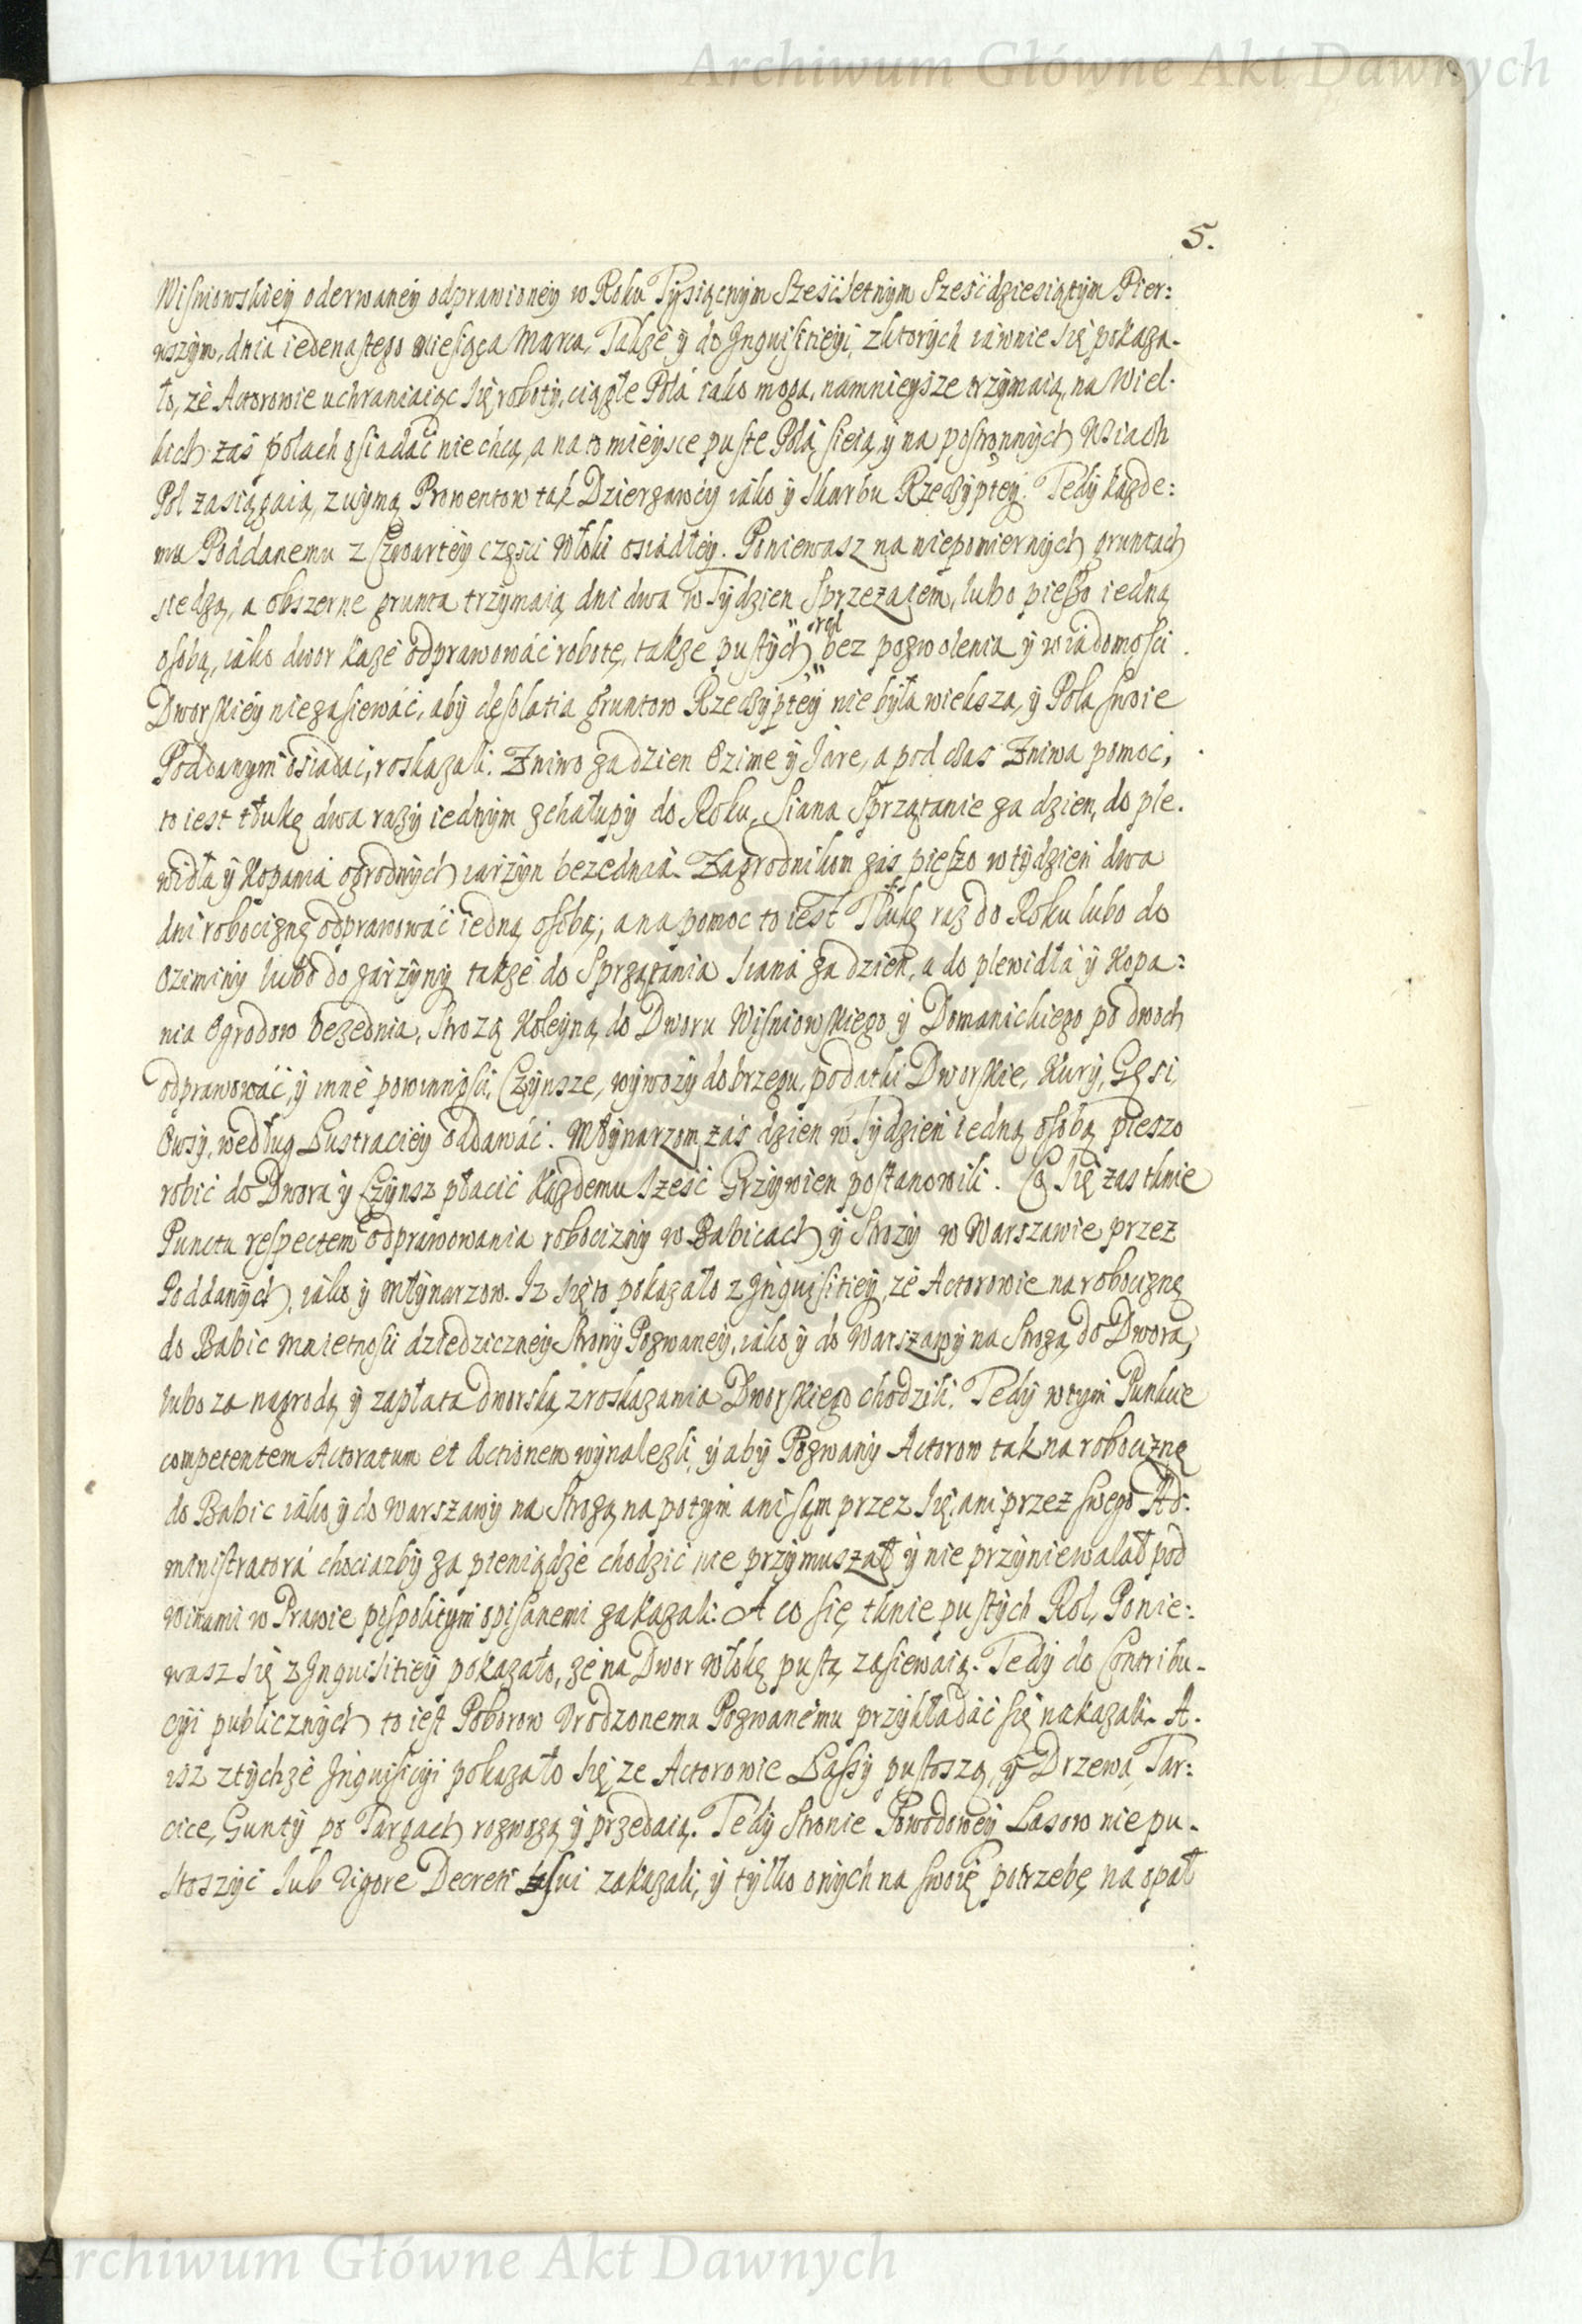 Archiwum Główne Akt Dawnych
5.
Wisniowskiey oderwaney odprawioney w Roku Tysiącnym Sześćsetnym Sześćdziesiątym Pier:
wszym, dnia iedenastego miesiąca Marca, Także y do Inquisitieyi, zktorych iáwnie się pokaza-
ło, że Actorowie uchraniaiąc się roboty, ciągłe Polá iako mogą, namnieysze trzymaią, na Wiel-
kich zaś polach osiadáć nie chcą, a na to mieysce puste Polá sieią, y na postronnych Wsiach
Pol zasiągaią, z uymą Prowentow tak Dzierzawcy iáko y Skarbu Rzeczyptey. Tedy każde:
mu Poddanemu z Czwartey częsci Włoki osiádłey. Poniewasz na niepomiernych gruntach
siedzą, a obszerne grunta trzymaią, dni dwa w Tydzien Sprzężaiem, lubo pieszo iedną
osobą, iáko dwor każe odprawowáć robotę, także pustych rol bez pozwolenia y wiadomosci
Dworskiey niezasiewáć, aby desolatia gruntow Rzeczyptey nie była wieksza, y Pola swoie
Poddanym osiadać, roskazali. Zniwo zadzien Ozime y Jare, a pod czas Zniwa pomoc,
to iest tłukę dwa razy iednym zchałupy do Roku, Siana Sprzątanie za dzien, do ple-
widła y Kopania ogrodnych iarzyn bezedniá. Zagrodnikom zás pieszo w tydzień dwa
dni robociznę odprawowáć iedną osobą; a na pomoc to iest Tłukę raz do Roku lubo do
Oziminy lubo do jarzyny także do Sprzątania siana za dzień, a do plewidłá y Kopa:
nia Ogrodow bezednia, Strożą Koleyną do Dworu Wisniowskiego y Domanickiego po dwoch
odprawowáć, y inne powinnosci, Czynsze, wywozy do brzegu, podatki Dworskie, Kury, Gęsi,
Owsy, według Lustraciey oddawáć. Młynarzom zás dzien w Tydzień iedną osobą pieszo
robić do Dworá y Czynsz płacić Każdemu sześć Grzywien postanowili. Co się zas tknie
Punctu respectem odprawowania robocizny w Babicach y Strozy w Warszawie przez
Poddanych, iáko y Młynarzow. Iz się to pokazało z Inquisitiey, że Actorowie na robociznę
do Babic Maietnosci dziedziczney Strony Pozwaney, iáko y do Warszawy na Strożą do Dwora,
lubo za nagrodą y zapłata dworską, z roskazania Dworskiego chodzili. Tedy w tym Punkcie
competentem Actoratum et Actionem wynalezli, y aby Pozwany Actorow tak na robociznę
do Babic iáko y do Warszawy na Strożą na potym ani sąm przez się, ani przez swego Ad:
ministratorá chociazby za pieniądze chodzić nie przymuszał y nie przyniewalał pod
Winami w Prawie pospolitym opisanemi zakazali: A co się tknie pustych Rol, Ponie:
wasz się z Inquisitiey pokazało, że na Dwor Włokę pustą zasiewaią. Tedy do Contribu-
cyi publicznych to iest Poborow Urodzonemu Pozwanemu przykładáć się nakazali. A.
isz ztychże Inquisicyi pokazało się ze Actorowie Lassy pustoszą, y Drzewa, Tar:
cice, Gunty po Targach rozwożą y przedaią. Tedy Stronie Powodowey Lasow nie pu-
stoszyć sub vigore Decreti sui zakazali, y tylko onych na swoię potrzebę na opał
Archiwum Główne Akt Dawnych